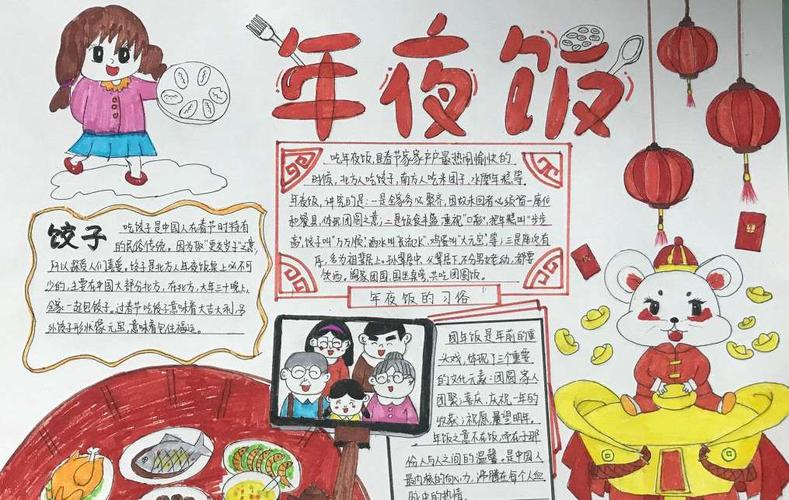 年夜饭
吃年夜饭,是春节家家户户最热闹愉快的
时候,北方人吃饺子,南方人吃米团子,水磨年糕等。
年夜饭,讲究的是:一是全家务必聚齐,因故未回者必须留一座位
和餐具,体现团圆之意;二是饭食丰盛,重视“口彩”,把年糕叫“步步
高”,饺子叫“万万顺”,酒水叫“长流水”,鸡蛋叫“大元宝”,等;三是座次有
序,多为祖辈居上,孙辈居中,父辈居下,不分男女老幼,都要
饮酒。阖家团圆,国泰民安,共吃团圆饭。
年夜饭的习俗
饺子
吃饺子是中国人在春节时特有
的民俗传统。因为取“更岁交子”之意,
所以深受人们喜爱。饺子是北方人年夜饭餐桌上必不可
少的,主要在中国大部分北方,在北方,大年三十晚上,
全家一起包饺子。过春节吃饺子意味着大吉大利,另
外饺子形状像元宝,意味着包住福运。
团年饭是年前的重
头戏,体现了三个重要
的文化元素:团圆,家人
团聚;喜庆,庆祝一年的
收获;祝愿,展望明年。
年饭之意不在饭,而在于那
份人与人之间的温馨,是中国人
最内核的向心力,沸腾在每个人血
脉中的热情。